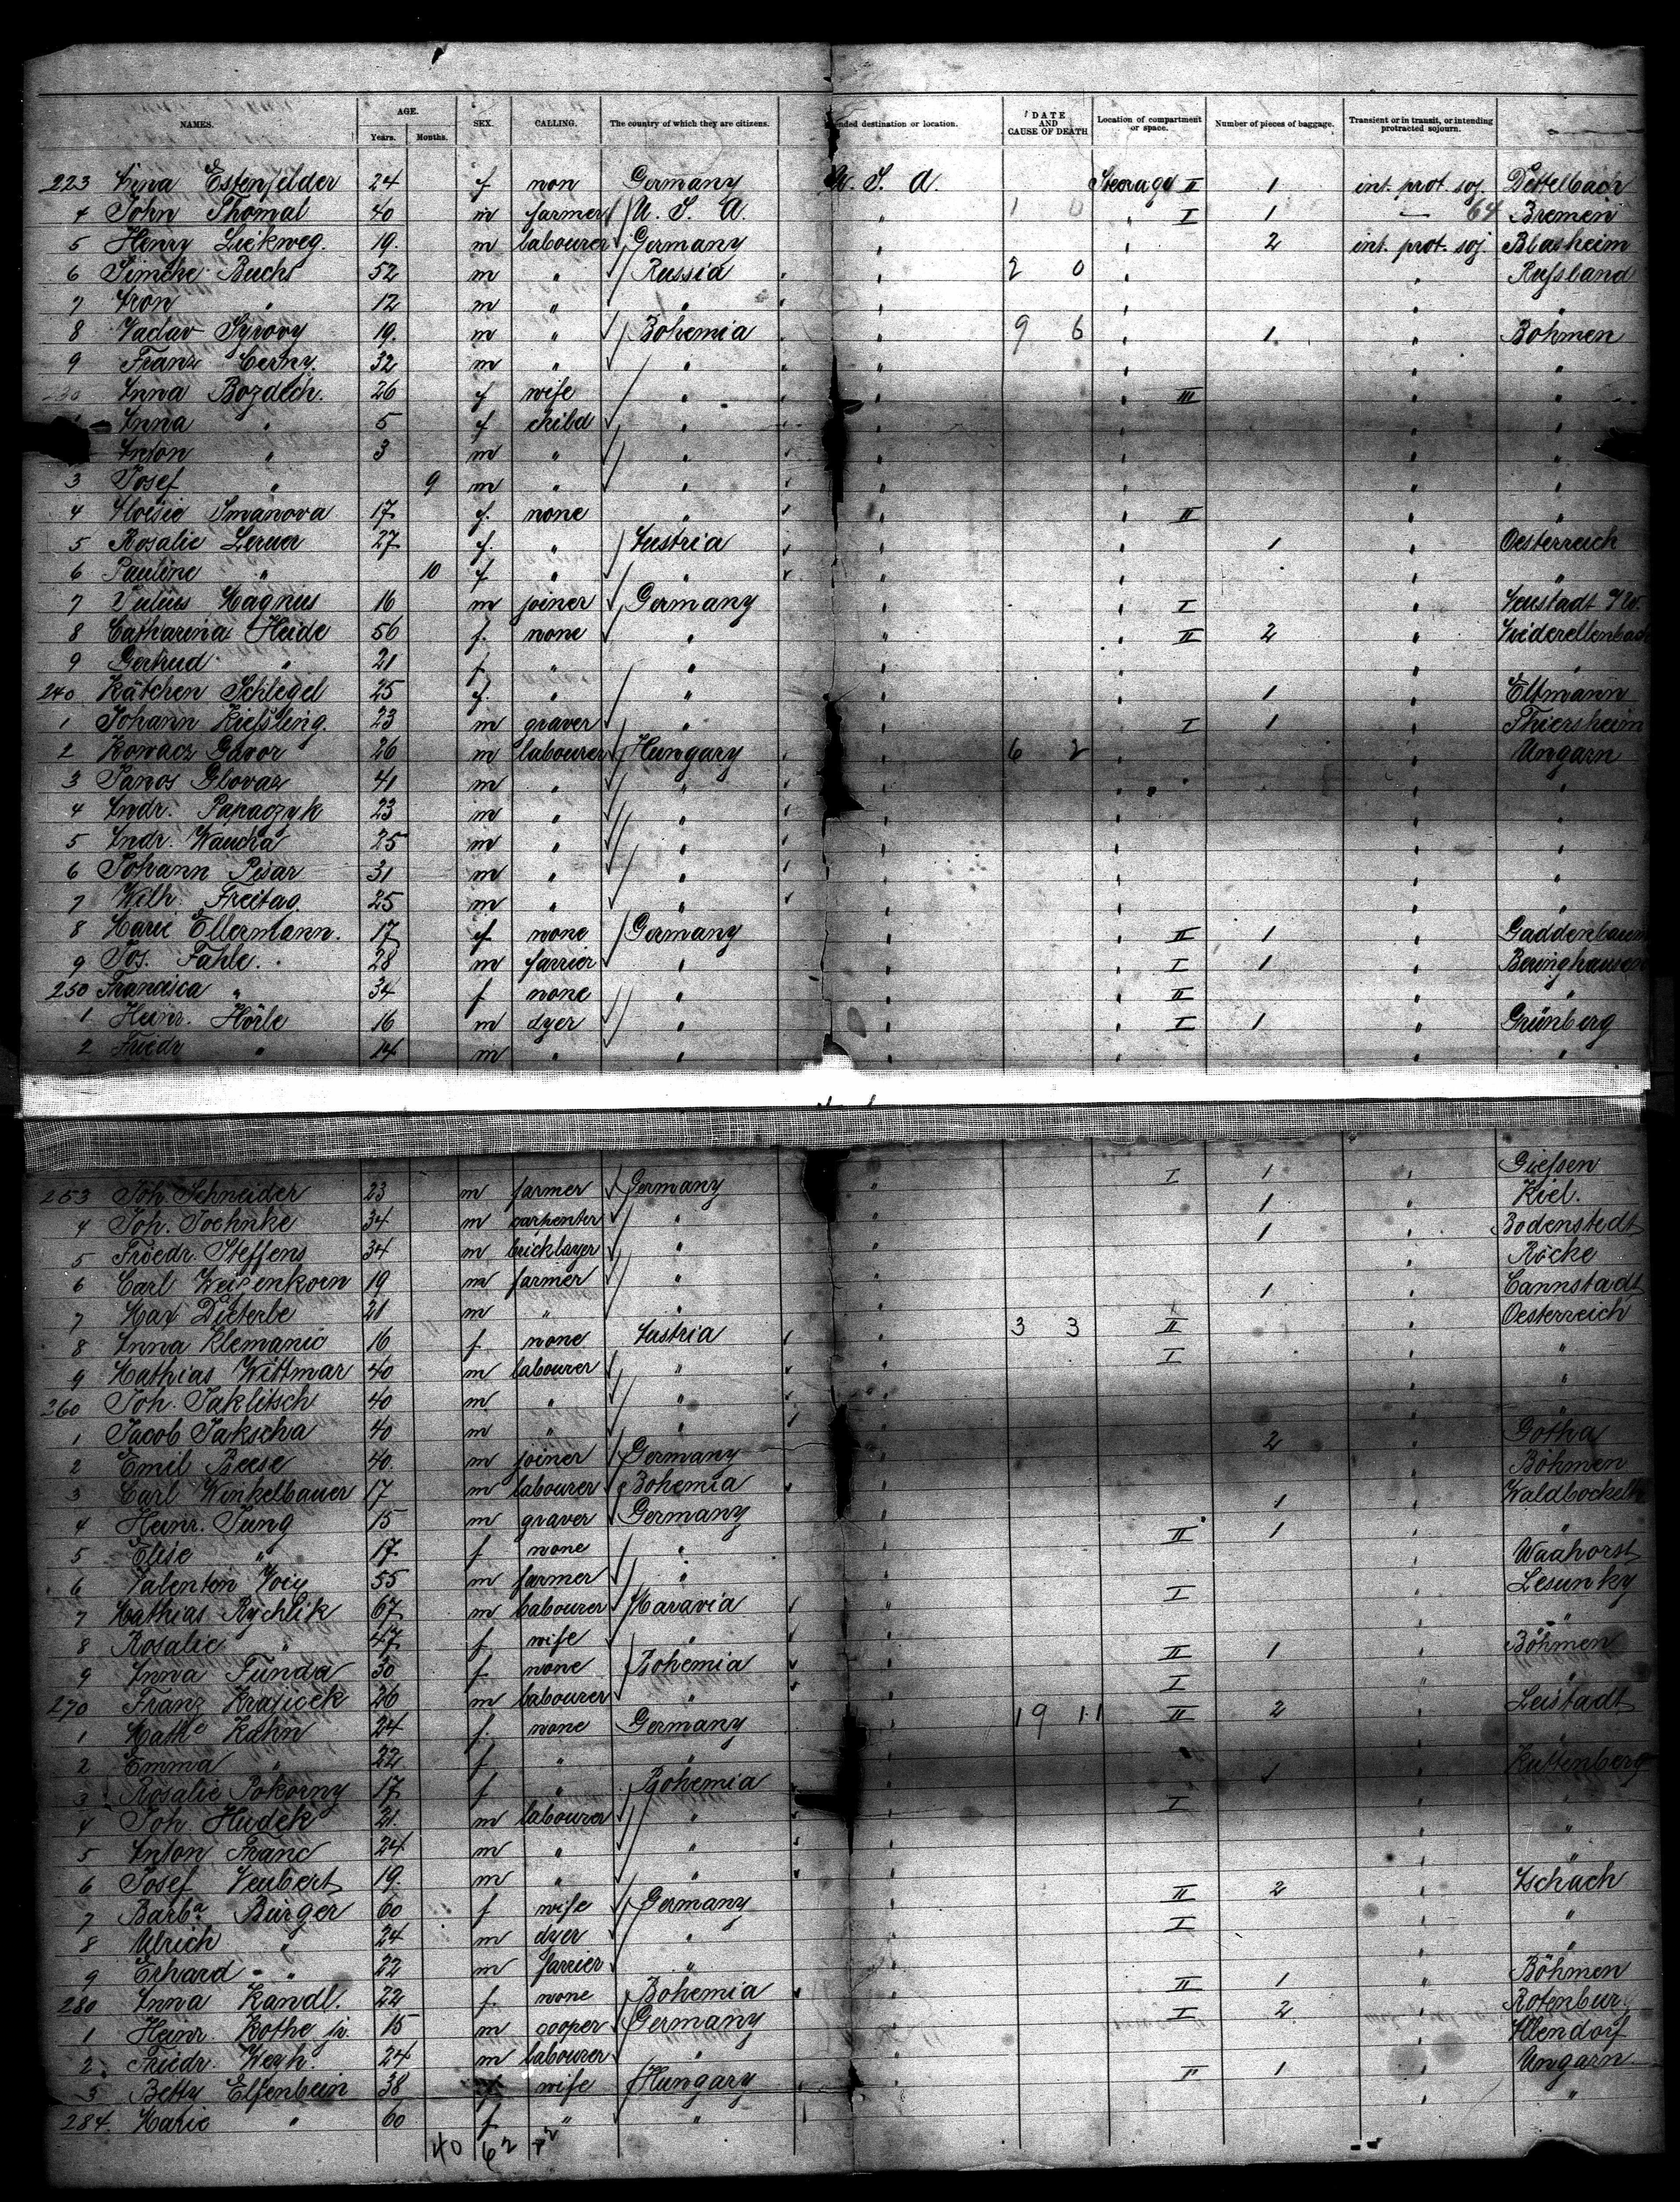 NAMES. AGE. Years. Months. SEX. CALLING. The country of which they are citizens. nded destination or location. DATE AND CAUSE OF DEATH Location of compartment or space. Number of pieces of baggage. Transient or in transit, or intending protracted sojourn.
223 Anna Estenfelder 24 f non Germany U. S. A. Steerage II 1 int. prot. soj. Dettelbach
4 John Thomal 40 m farmer U. S. A. " 1 0 " I 1 — 64 Bremen
5 Henry Liekweg. 19. m labourer Germany " " 2 int. prot. soj. Blasheim
6 Simche Bucht 52 m " Russia " 2 0 " " Rußland
7 Aron " 12 m " " " " " "
8 Vaclav Syrovy 19. m " Bohemia " 9 6 " 1 " Böhmen
9 Franz Cerny. 32 m " " " " " "
30 Anna Bozdech. 26 f wife " " " III " "
Anna " 5 f child " " " " "
Anton " 3 m " " " " " "
3 Josef " 9 m " " " " " "
4 Aloisie Smanova 17 f. none " " " II " "
5 Rosalie Lerner 27 f. " Austria " " 1 " Oesterreich
6 Pauline " 10 f " " " " " "
7 Julius Magnus 16 m joiner Germany " " I " Neustadt
8 Catharina Heide 56 f. none " " " II 2 " Niederellenbach
9 Gertrud " 21 f " " " " " "
240 Kätchen Schlegel 25 f. " " " " 1 " Eltmann
1 Johann Kießling. 23 m graver " " " I 1 " Thiersheim
2 Kowacz Gavor 26 m labourer Hungary " 6 2 " " Ungarn
3 Janos Glovaz 41 m " " " " " "
4 Andr. Papaczyk 23 m " " " " " "
5 Andr. Waucha 25 m " " " " " "
6 Johann Pisar 31 m " " " " " "
7 Wilh. Freitag 25 m " " " " " "
8 Marie Ellermann. 17 f none Germany " " II 1 " Gaddenbaum
9 Jos. Fahle. 28 m farrier " " " I 1 " Beringhausen
250 Francisca " 34 f none " " " II " "
1 Heinr. Hörle 16 m dyer " " " I 1 " Grünberg
2 Friedr " 14 m " " " " " "
253 Joh. Schneider 23 m farmer Germany " I 1 " Gießen
4 Joh. Joehnke 34 m carpenter " " 1 " Kiel.
5 Friedr. Steffens 34 m bricklayer " " 1 " Bodenstedt
6 Carl Weißenkorn 19 m farmer " " " Röcke
7 Max Dieterle 21 m " " " 1 " Cannstadt
8 Anna Klemanic 16 f none Austria " 3 3 II " Oesterreich
9 Mathias Wittmar 40 m labourer " " I " "
260 Joh. Jaklitsch 40 m " " " " "
1 Jacob Jakscha 40 m " " " " "
2 Emil Beese 40. m joiner Germany " 2 " Gotha
3 Carl Winkelbauer 17 m labourer Bohemia " " Böhmen
4 Heinr. Jung 15 m graver Germany " 1 " Waldböckelh
5 Elise " 17 f none " " II 1 " "
6 Valentin 55 m farmer " " I " Waahorst
7 Mathias Rychlik 67 m labourer Maravia " " Lesunky
8 Rosalie " 47 f. wife " " II 1 " "
9 Anna Funda 30 f none Bohemia " " Böhmen
270 Franz Krajicek 26 m labourer " " I " "
1 Mathe Kahn 24 f. none Germany " 19 11 II 2 " Leistadt
2 Emma " 22 f " " " " "
3 Rosalie Pokorny 17 f " Bohemia " 1 " Kuttenberg
4 Joh. Hudek 21. m labourer " " I " "
5 Anton Franc 24 m " " " " "
6 Josef Neubert 19. m " " " " "
7 Barba Bürger 60 f wife Germany " II 2 " Aschach
8 Ulrich " 24 m dyer " " I " "
9 Erhard " 22 m farrier " " " "
280 Anna Kandl. 22 f. none Bohemia " II 1 " Böhmen
1 Heinr. Kothe jr. 15 m cooper Germany " I 2 " Rotenburg
2 Friedr. Weyh. 24 m labourer " " " Allendorf
3 Betty Elfenbein 38 f wife Hungary " II 1 " Ungarn
284. Marie " 60 f " " " " "
40 62